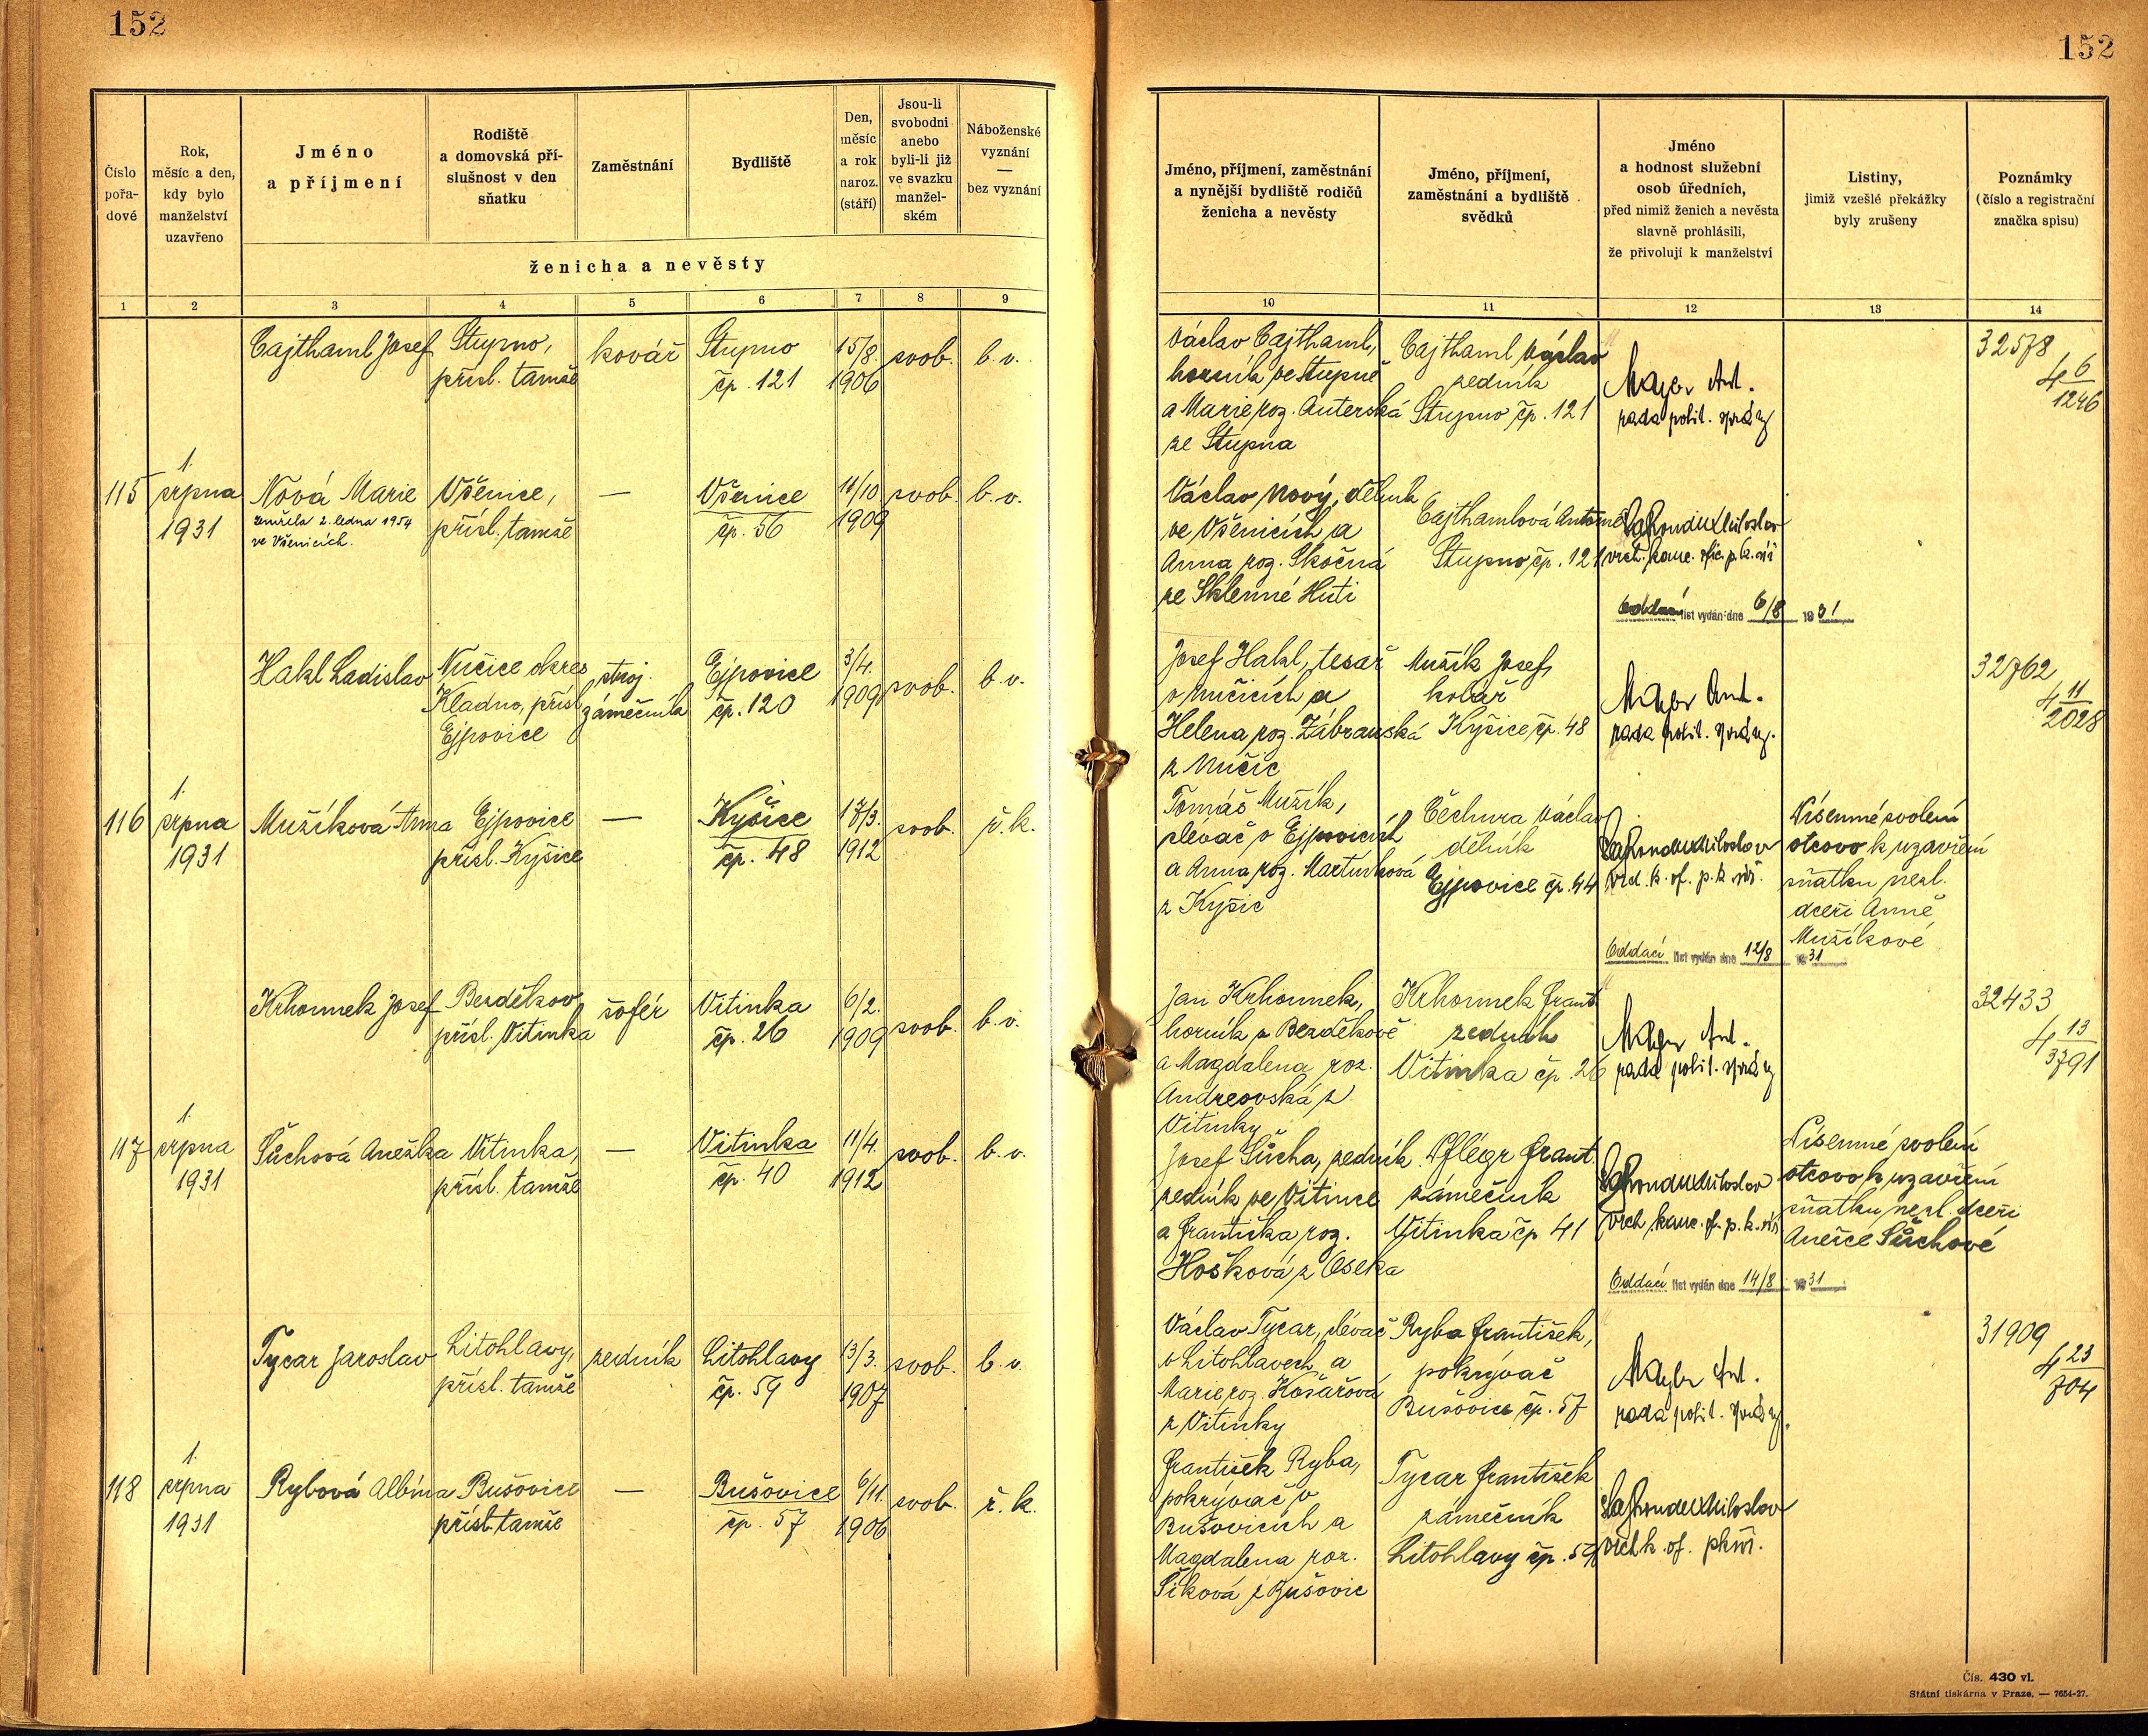 152
152
Číslo
pořa-
dové
Rok,
měsíc a den,
kdy bylo
manželství
uzavřeno
Jméno
a příjmení
Rodiště
a domovská pří-
slušnost v den
sňatku
Zaměstnání
Bydliště
Den,
měsíc
a rok
naroz.
(stáří)
Jsou-li
svobodni
anebo
byli-li již
ve svazku
manžel-
ském
Náboženské
vyznání
—
bez vyznání
ženicha a nevěsty
1 2 3 4 5 6 7 8 9
Jméno, příjmení, zaměstnání
a nynější bydliště rodičů
ženicha a nevěsty
Jméno, příjmení,
zaměstnání a bydliště
svědků
Jméno
a hodnost služební
osob úředních,
před nimiž ženich a nevěsta
slavně prohlásili,
že přivolují k manželství
Listiny,
jimiž vzešlé překážky
byly zrušeny
Poznámky
(číslo a registrační
značka spisu)
10 11 12 13 14
Cajthaml Josef
Stupno,
přísl. tamže
kovář
Stupno
čp. 121
15/8.
1906
svob.
b. v.
Václav Cajthaml,
horník ve Stupně
a Marie roz. Auterská
ze Stupna
Cajthaml Václav
zedník
Stupno čp. 121
Mayer Ant.
rada polit. správy
32578
4 6
1246
115
1.
srpna
1931
Nová Marie
zemřela 2. ledna 1954
ve Všenicích.
Všenice,
přísl. tamže
—
Všenice
čp. 56
11/10
1909
svob.
b. v.
Václav Nový, dělník
ve Všenicích a
Anna roz. Skočná
ze Sklenné Huti
Cajthamlová Antonie
Stupno čp. 121
Miloslav
vrch. kanc. ofic. p. k. síř
Oddací list vydán dne 6/8 1931
Hakl Ladislav
Nučice okres
Kladno, přísl.
Ejpovice
stroj.
zámečník
Ejpovice
čp. 120
3/4.
1909
svob.
b. v.
Josef Hakl, tesař
v Nučicích a
Helena roz. Zábranská
z Nučic
Mužík Josef,
kolář
Kyšice čp. 48
Mayer Ant.
rada polit. správy.
32762
4 11
2028
116
1.
srpna
1931
Mužíková Anna
Ejpovice
přísl. Kyšice
—
Kyšice
čp. 48
17/3.
1912
svob.
ř. k.
Tomáš Mužík,
slevač v Ejpovicích
a Anna roz. Martínková
z Kyšic
Čechura Václav
dělník
Ejpovice čp. 44
Miloslav
vrch. k. of. p. k. síř.
Písemné svolení
otcovo k uzavření
sňatku nezl.
dceři Anně
Mužíkové
Oddací list vydán dne 12/8 1931
Krhounek Josef
Bezděkov
přísl. Vitinka
šofér
Vitinka
čp. 26
6/2.
1909
svob.
b. v.
Jan Krhounek,
horník v Bezděkově
a Magdalena roz.
Andreovská z
Vitinky
Krhounek Frant
zedník
Vitinka čp. 26
Mayer Ant.
rada polit. správy
32433
4 13
3791
117
1.
srpna
1931
Šůchová Anežka
Vitinka,
přísl. tamže
—
Vitinka
čp. 40
11/4.
1912
svob.
b. v.
Josef Šůcha, zedník
zedník ve Vitince
a Františka roz.
Hošková z Oseka
Pflégr Frant.
zámečník
Vitinka čp 41
Miloslav
vrch kanc. of. p. k. síř
Písemné svolení
otcovo k uzavření
sňatku nezl. dceři
Anežce Šůchové
Oddací list vydán dne 14/8 1931
Tycar Jaroslav
Litohlavy,
přísl. tamže
zedník
Litohlavy
čp. 59
13/3.
1907
svob.
b. v.
Václav Tycar, slévač
v Litohlavech a
Marie roz. Košařová
z Vitinky
Ryba František,
pokrývač
Bušovice čp. 57
Mayer Ant.
rada polit. správy.
31909
4 23
704
118
1.
srpna
1931
Rybová Albína
Bušovice
přísl. tamže
—
Bušovice
čp. 57
6/11.
1906
svob.
ř. k.
František Ryba,
pokrývač v
Bušovicích a
Magdalena roz.
Šiková z Bušovic
Tycar František
zámečník
Litohlavy čp. 59
Miloslav
vrch k. of. pksř.
Čís. 430 vl.
Státní tiskárna v Praze. — 7654-27.